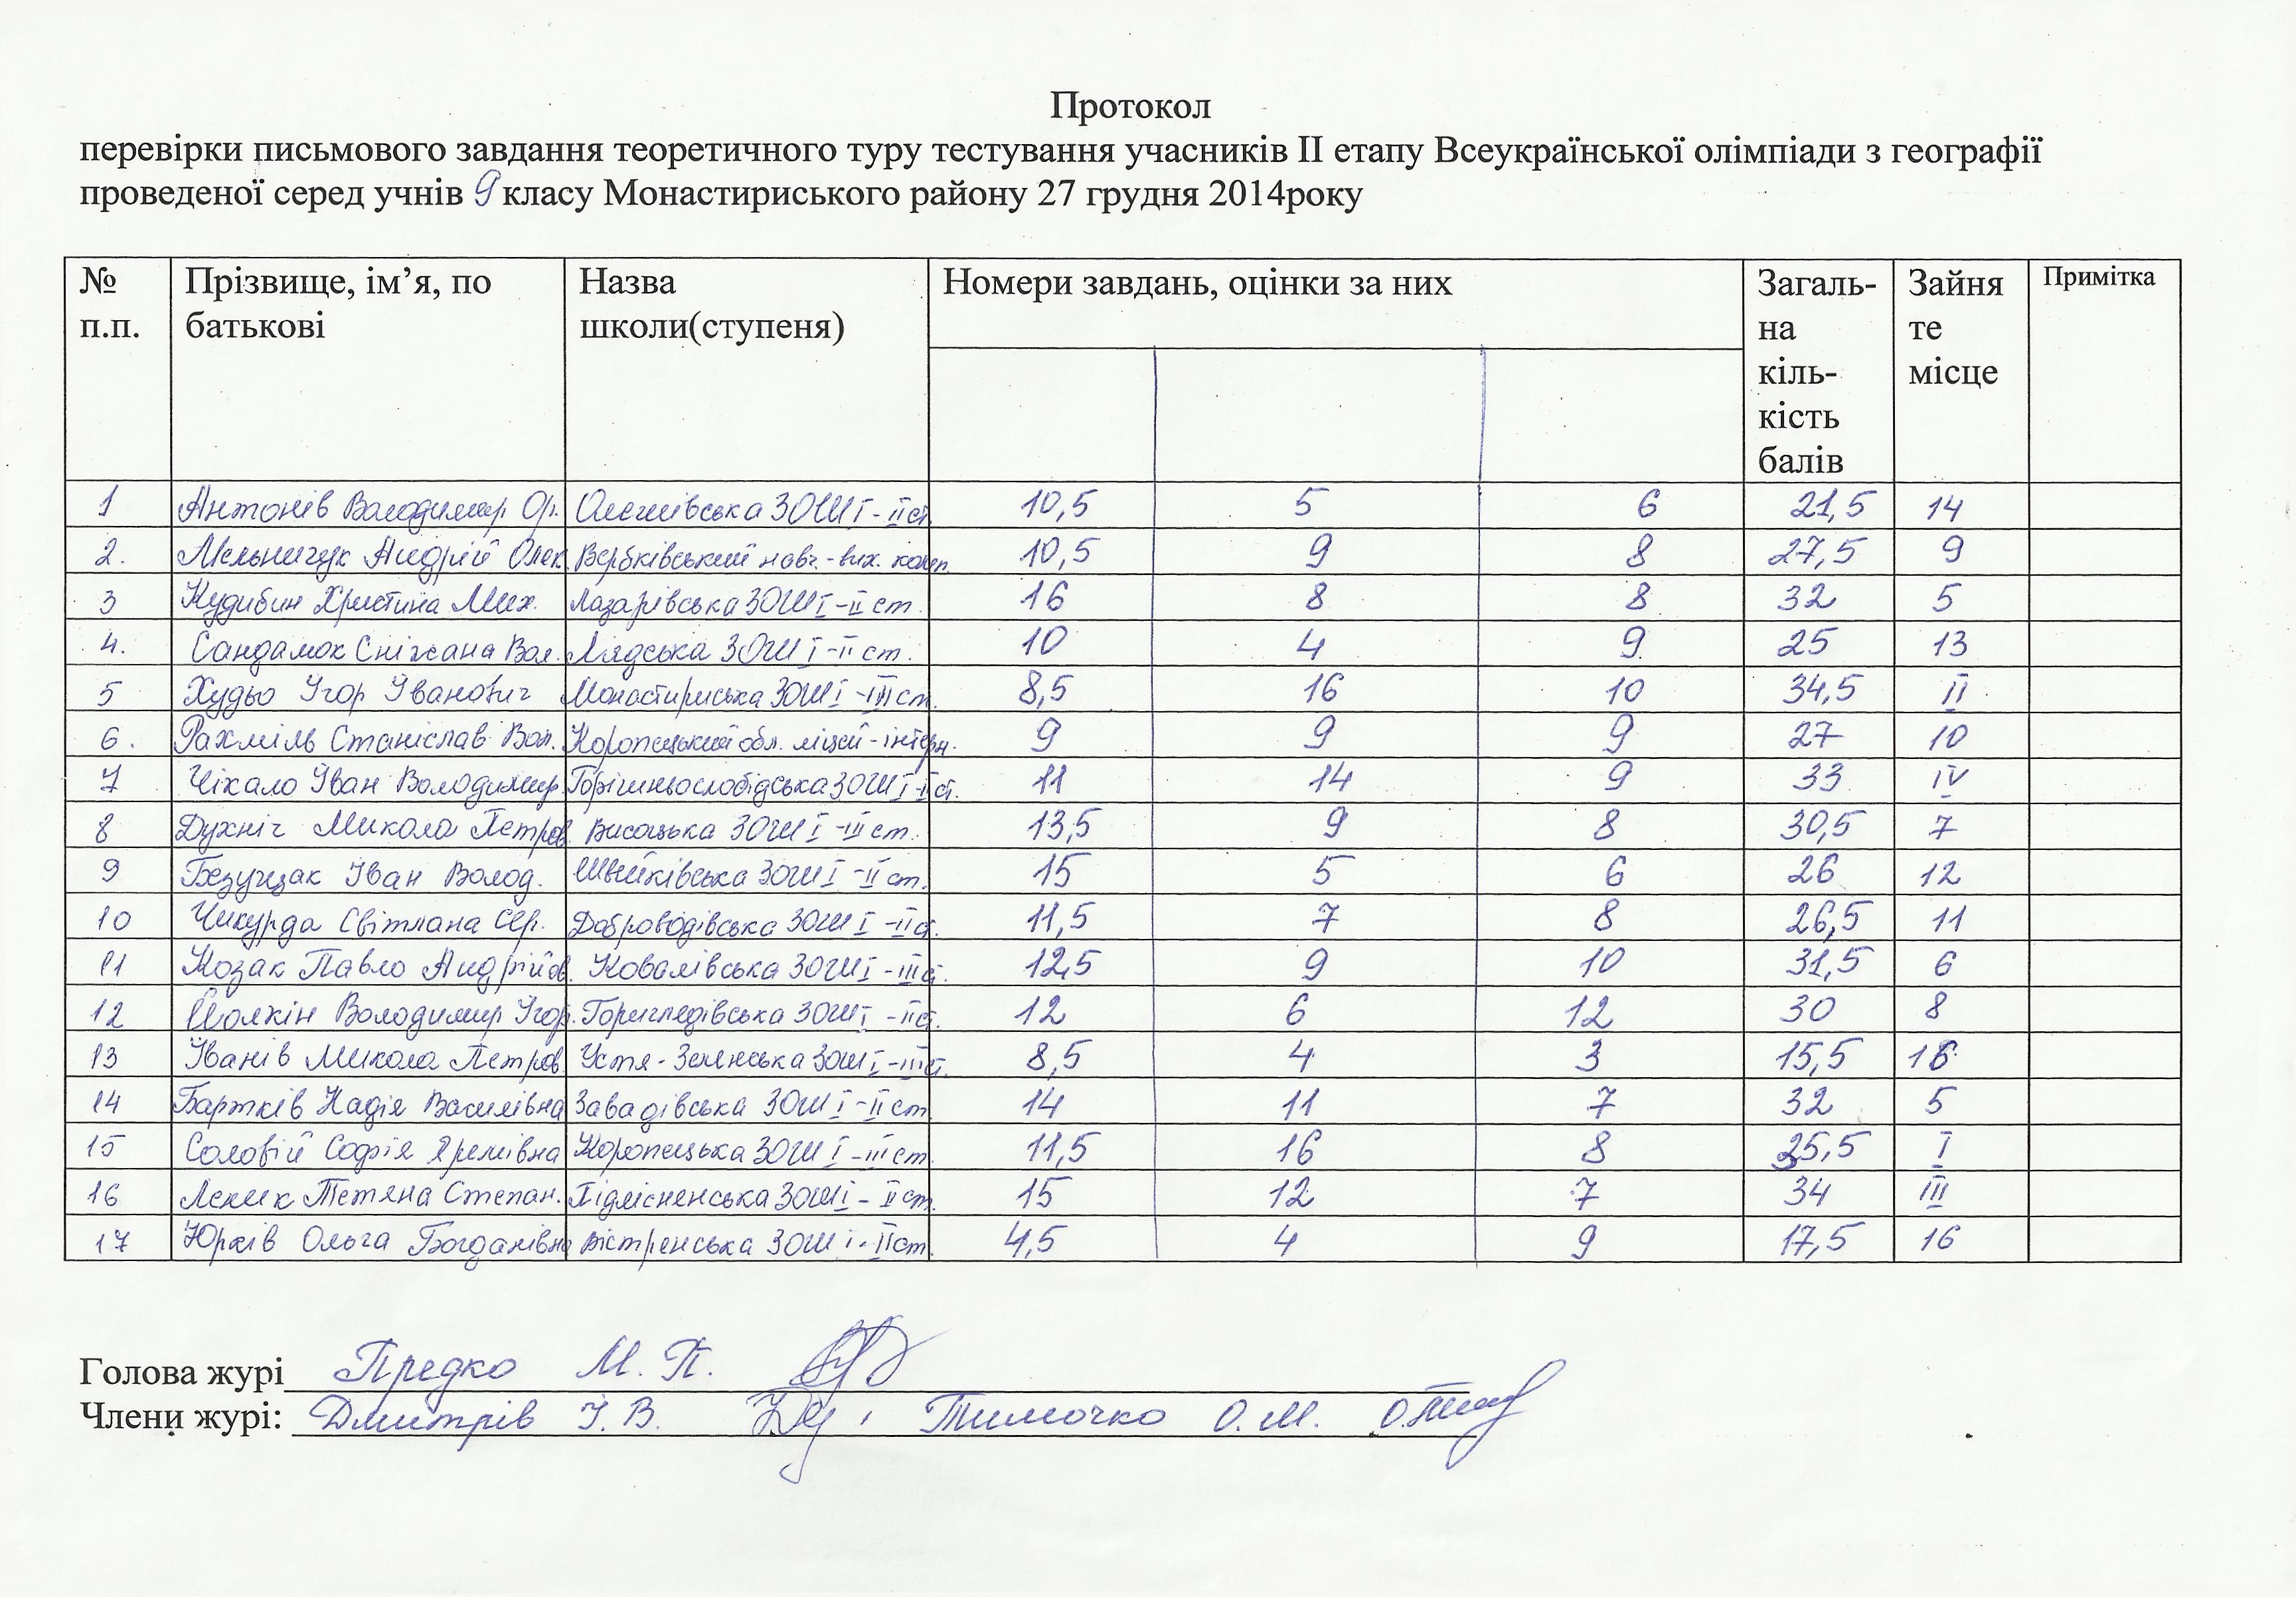 Протокол
перевірки письмового завдання теоретичного туру тестування учасників ІІ етапу Всеукраїнської олімпіади з географії
проведеної серед учнів 9 класу Монастириського району 27 грудня 2014року
№ п.п. Прізвище, ім’я, по батькові Назва школи(ступеня) Номери завдань, оцінки за них Загаль-на кіль-кість балів Зайня те місце Примітка
1 Антонів Володимир Ор. Олешівська ЗОШ І-ІІ ст. 10,5 5 6 21,5 14
2. Мельничук Андрій Олек. Вербківський навч.-вих. комп. 10,5 9 8 27,5 9
3 Кудибин Христина Мих. Лазарівська ЗОШ І-ІІ ст. 16 8 8 32 5
4. Сандамох Сніжана Вол. Лядська ЗОШ І-ІІ ст. 10 4 9 25 13
5 Худьо Ігор Іванович Монастириська ЗОШ І-ІІІ ст. 8,5 16 10 34,5 ІІ
6. Рахміль Станіслав Вол. Коропецький обл. ліцей-інтерн. 9 9 9 27 10
7 Чікало Іван Володимир. Горішньослобідська ЗОШ І-ІІ ст. 11 14 9 33 ІV
8 Духніч Микола Петров. Висоцька ЗОШ І-ІІІ ст. 13,5 9 8 30,5 7
9 Безущак Іван Волод. Швейківська ЗОШ І-ІІ ст. 15 5 6 26 12
10 Чикурда Світлана Сер. Доброводівська ЗОШ І-ІІ ст. 11,5 7 8 26,5 11
11 Козак Павло Андрійов. Ковалівська ЗОШ І-ІІІ ст. 12,5 9 10 31,5 6
12 Володимир Ігор. Горигледівська ЗОШ І-ІІ ст. 12 6 12 30 8
13 Іванів Микола Петров. Устя-Зеленська ЗОШ І-ІІІ ст. 8,5 4 3 15,5 16
14 Бартків Надія Василівна Завадівська ЗОШ І-ІІ ст. 14 11 7 32 5
15 Соловій Софія Яремівна Коропецька ЗОШ І-ІІІ ст. 11,5 16 8 35,5 І
16 Лекик Тетяна Степан. Підлісненська ЗОШ І-ІІ ст. 15 12 7 34 ІІІ
17 Юрків Ольга Богданівна Вістренська ЗОШ І-ІІ ст. 4,5 4 9 17,5 16
Голова журі Предко М. П.
Члени журі: Дмитрів І. В. , Тимочко О. М.